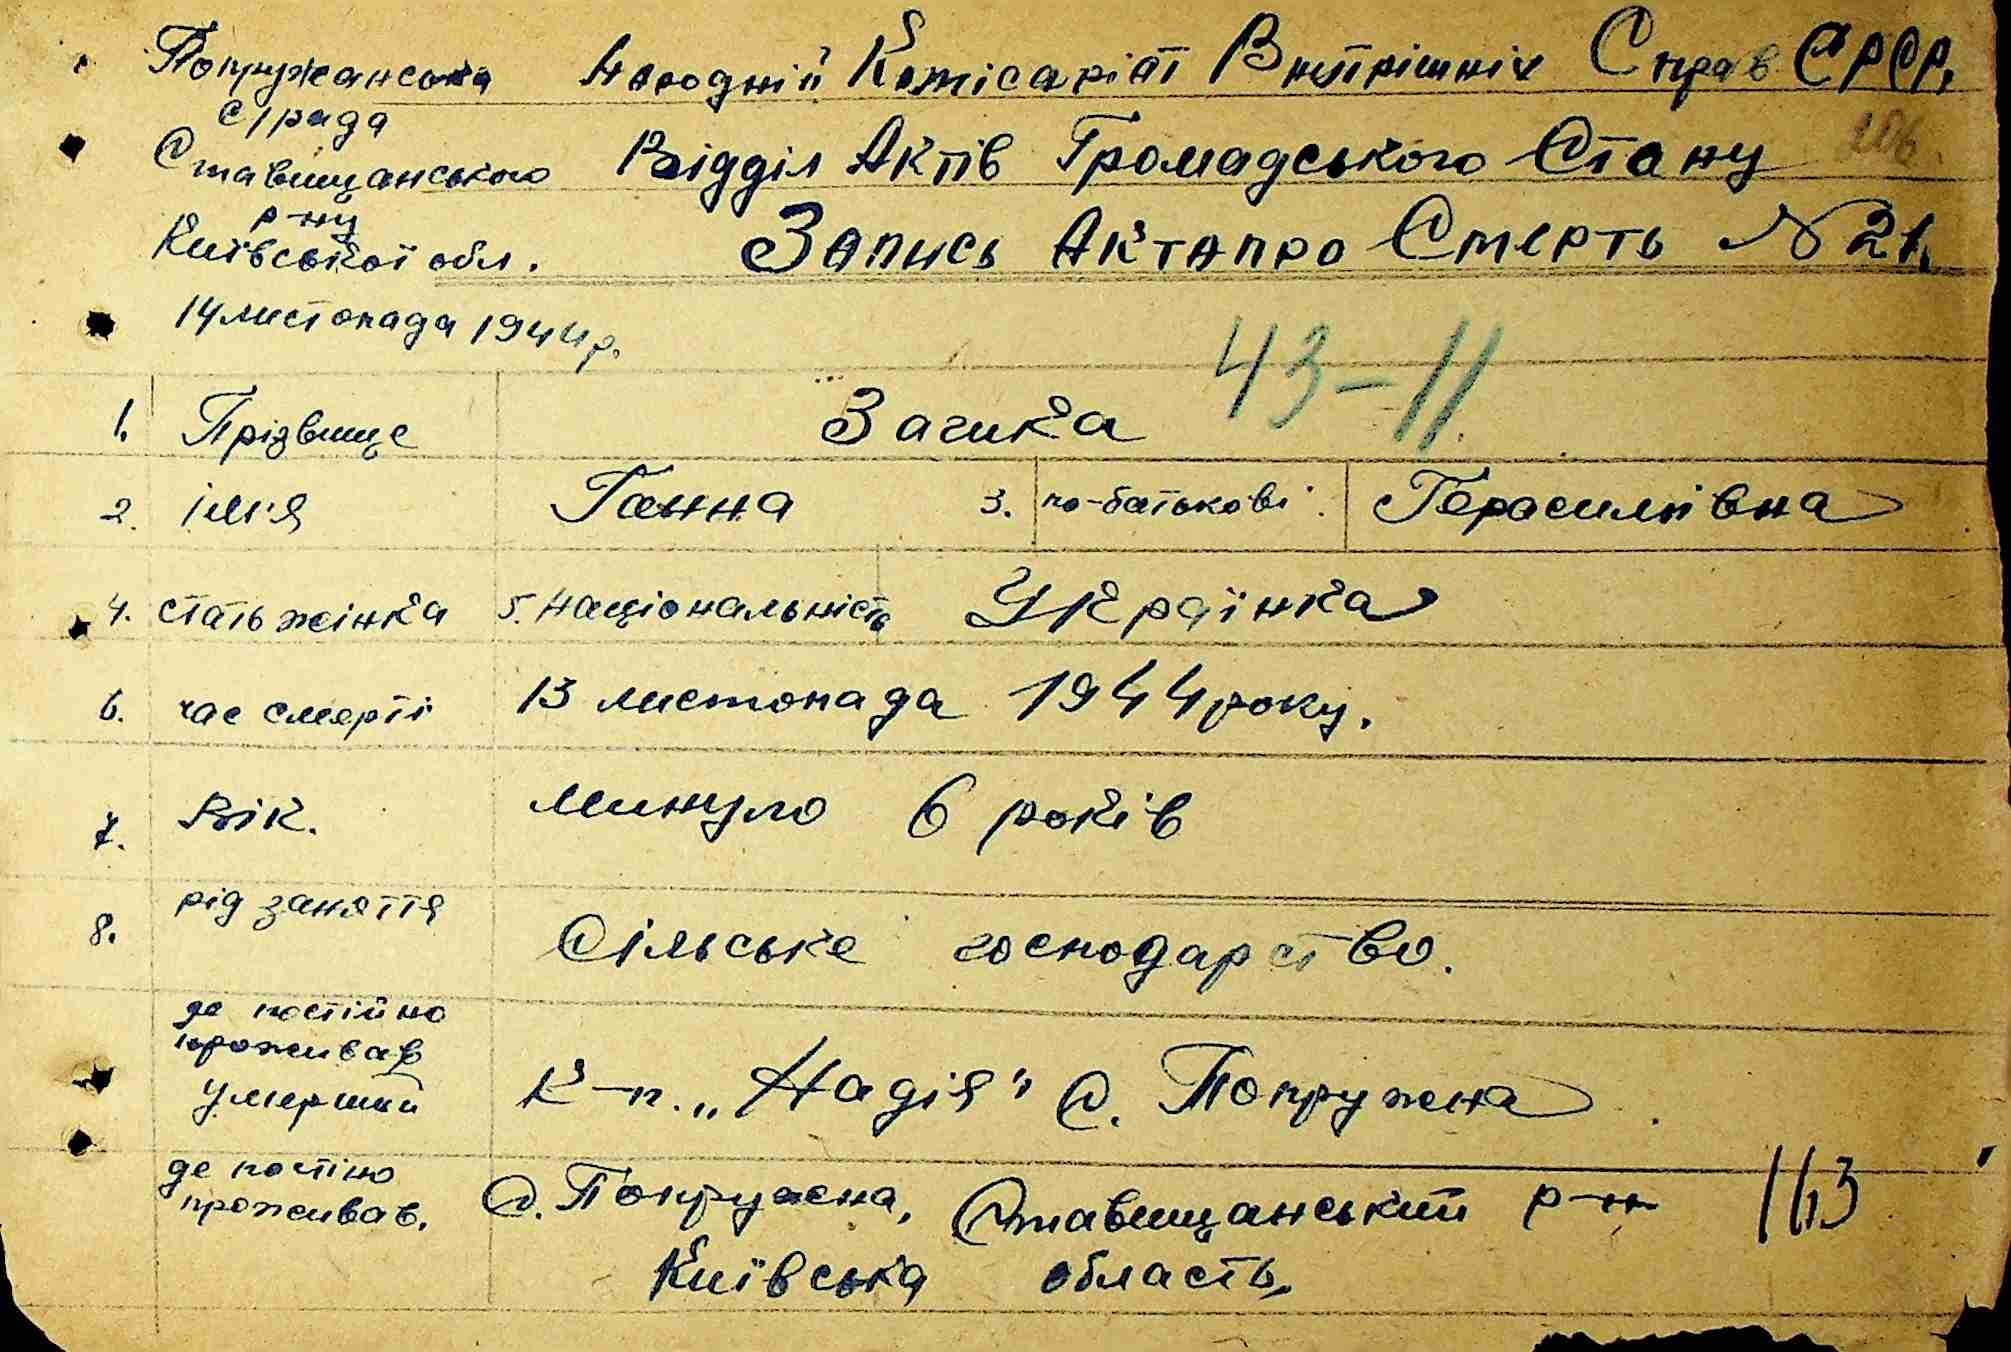 Попружанська Народній Комісаріят Внутрішніх Справ СРСР.
с/рада
Ставищанського Відділ Актів Громадського Стану
р-ну
Київської обл. Запись Акта про Смерть N 21.
14 листопада 1944 р.
43-11
1. Прізвище Загика
2. імя Ганна 3. по-батькові Герасимівна
4. стать жінка 5. Національність Українка
6. час смерті 13 листопада 1944 року.
7. Вік. минуло 6 років
8. рід заняття Сільське господарство.
де постійно
проживав
умерший к-п. „Надія" с. Попружна
де постіно
проживав. с. Попружна, Ставищанський р-н 163
Київська область,